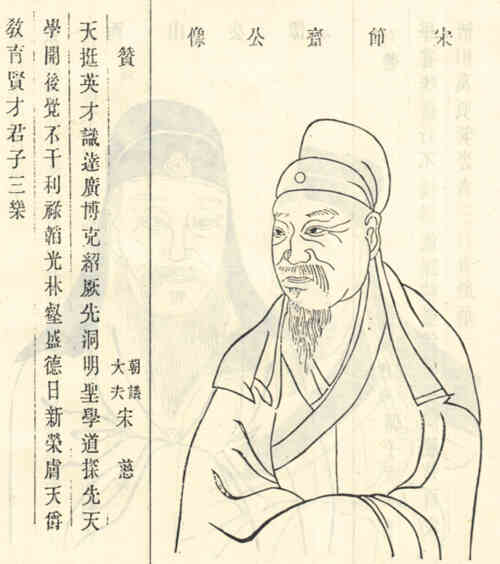 宋節齋公像
贊 朝議大夫宋慈
天挺英才識達廣博克紹厥先洞明聖學道探先天
學開後覺不干利祿韜光林壑盛德日新榮膺天爵
教育賢才君子三樂